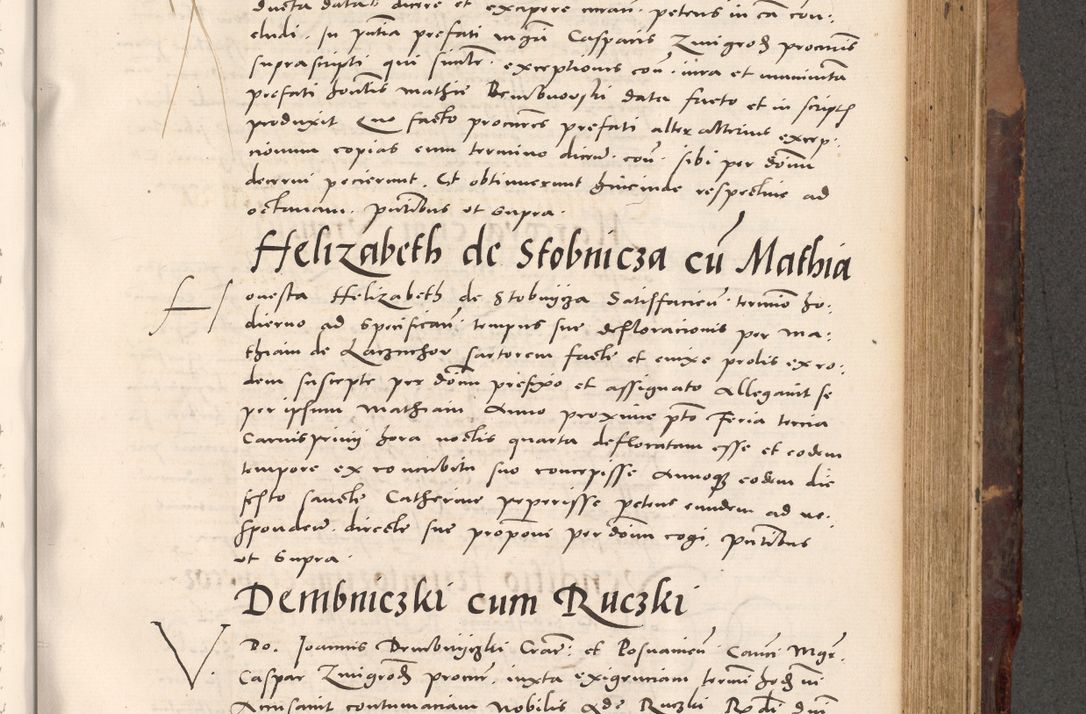 ducta datas dicere et excipere curan. petens in ca con.
cludi. In pntia prefati mgri Casparis Zmigrod procuris
suprascripti qui simltr. exceptionis con. iura et munimta
prefati honlis Mathie Dembnovski data facto et in scriptis
produxit Quo facto procures prefati alter alterius excep.
cionum copias cum termino dicen. con. sibi per donm
decerni pecierunt. Et obtinuerunt hincinde respective ad
octavam. pntibus ut supra.
Helizabeth de Stobnicza cu Mathia
Honesta Helizabeth de Stobnycza Satisfacien. termino ho.
dierno ad specifican. tempus sue deflorationis per Ma-
thiam de Laznchor sartorem facte et enixe prolis ex eo.
dem suscepte per donm prefixo et assignato Allegavit se
per ipsum Mathiam Anno proxime pto Feria tercia
Carnisprivii hora noctis quarta defloratam esse et eodem
tempore ex concubitu suo concepisse Annoq eodem die
festo sancte Catherine peperisse petens eundem ad re.
sponden. directe sue proponi per donm cogi. pntibus
ut supra.
Dembniczki cum Ruczki
Vdo. Joannis Dembnyczki Cran. et Posnanien. Canci Mgr.
Caspar Zmigrod procur. iuxta exigenciam termi hodni
Accusavit contumaciam Nobilis Ade Ruczki Rndi dni